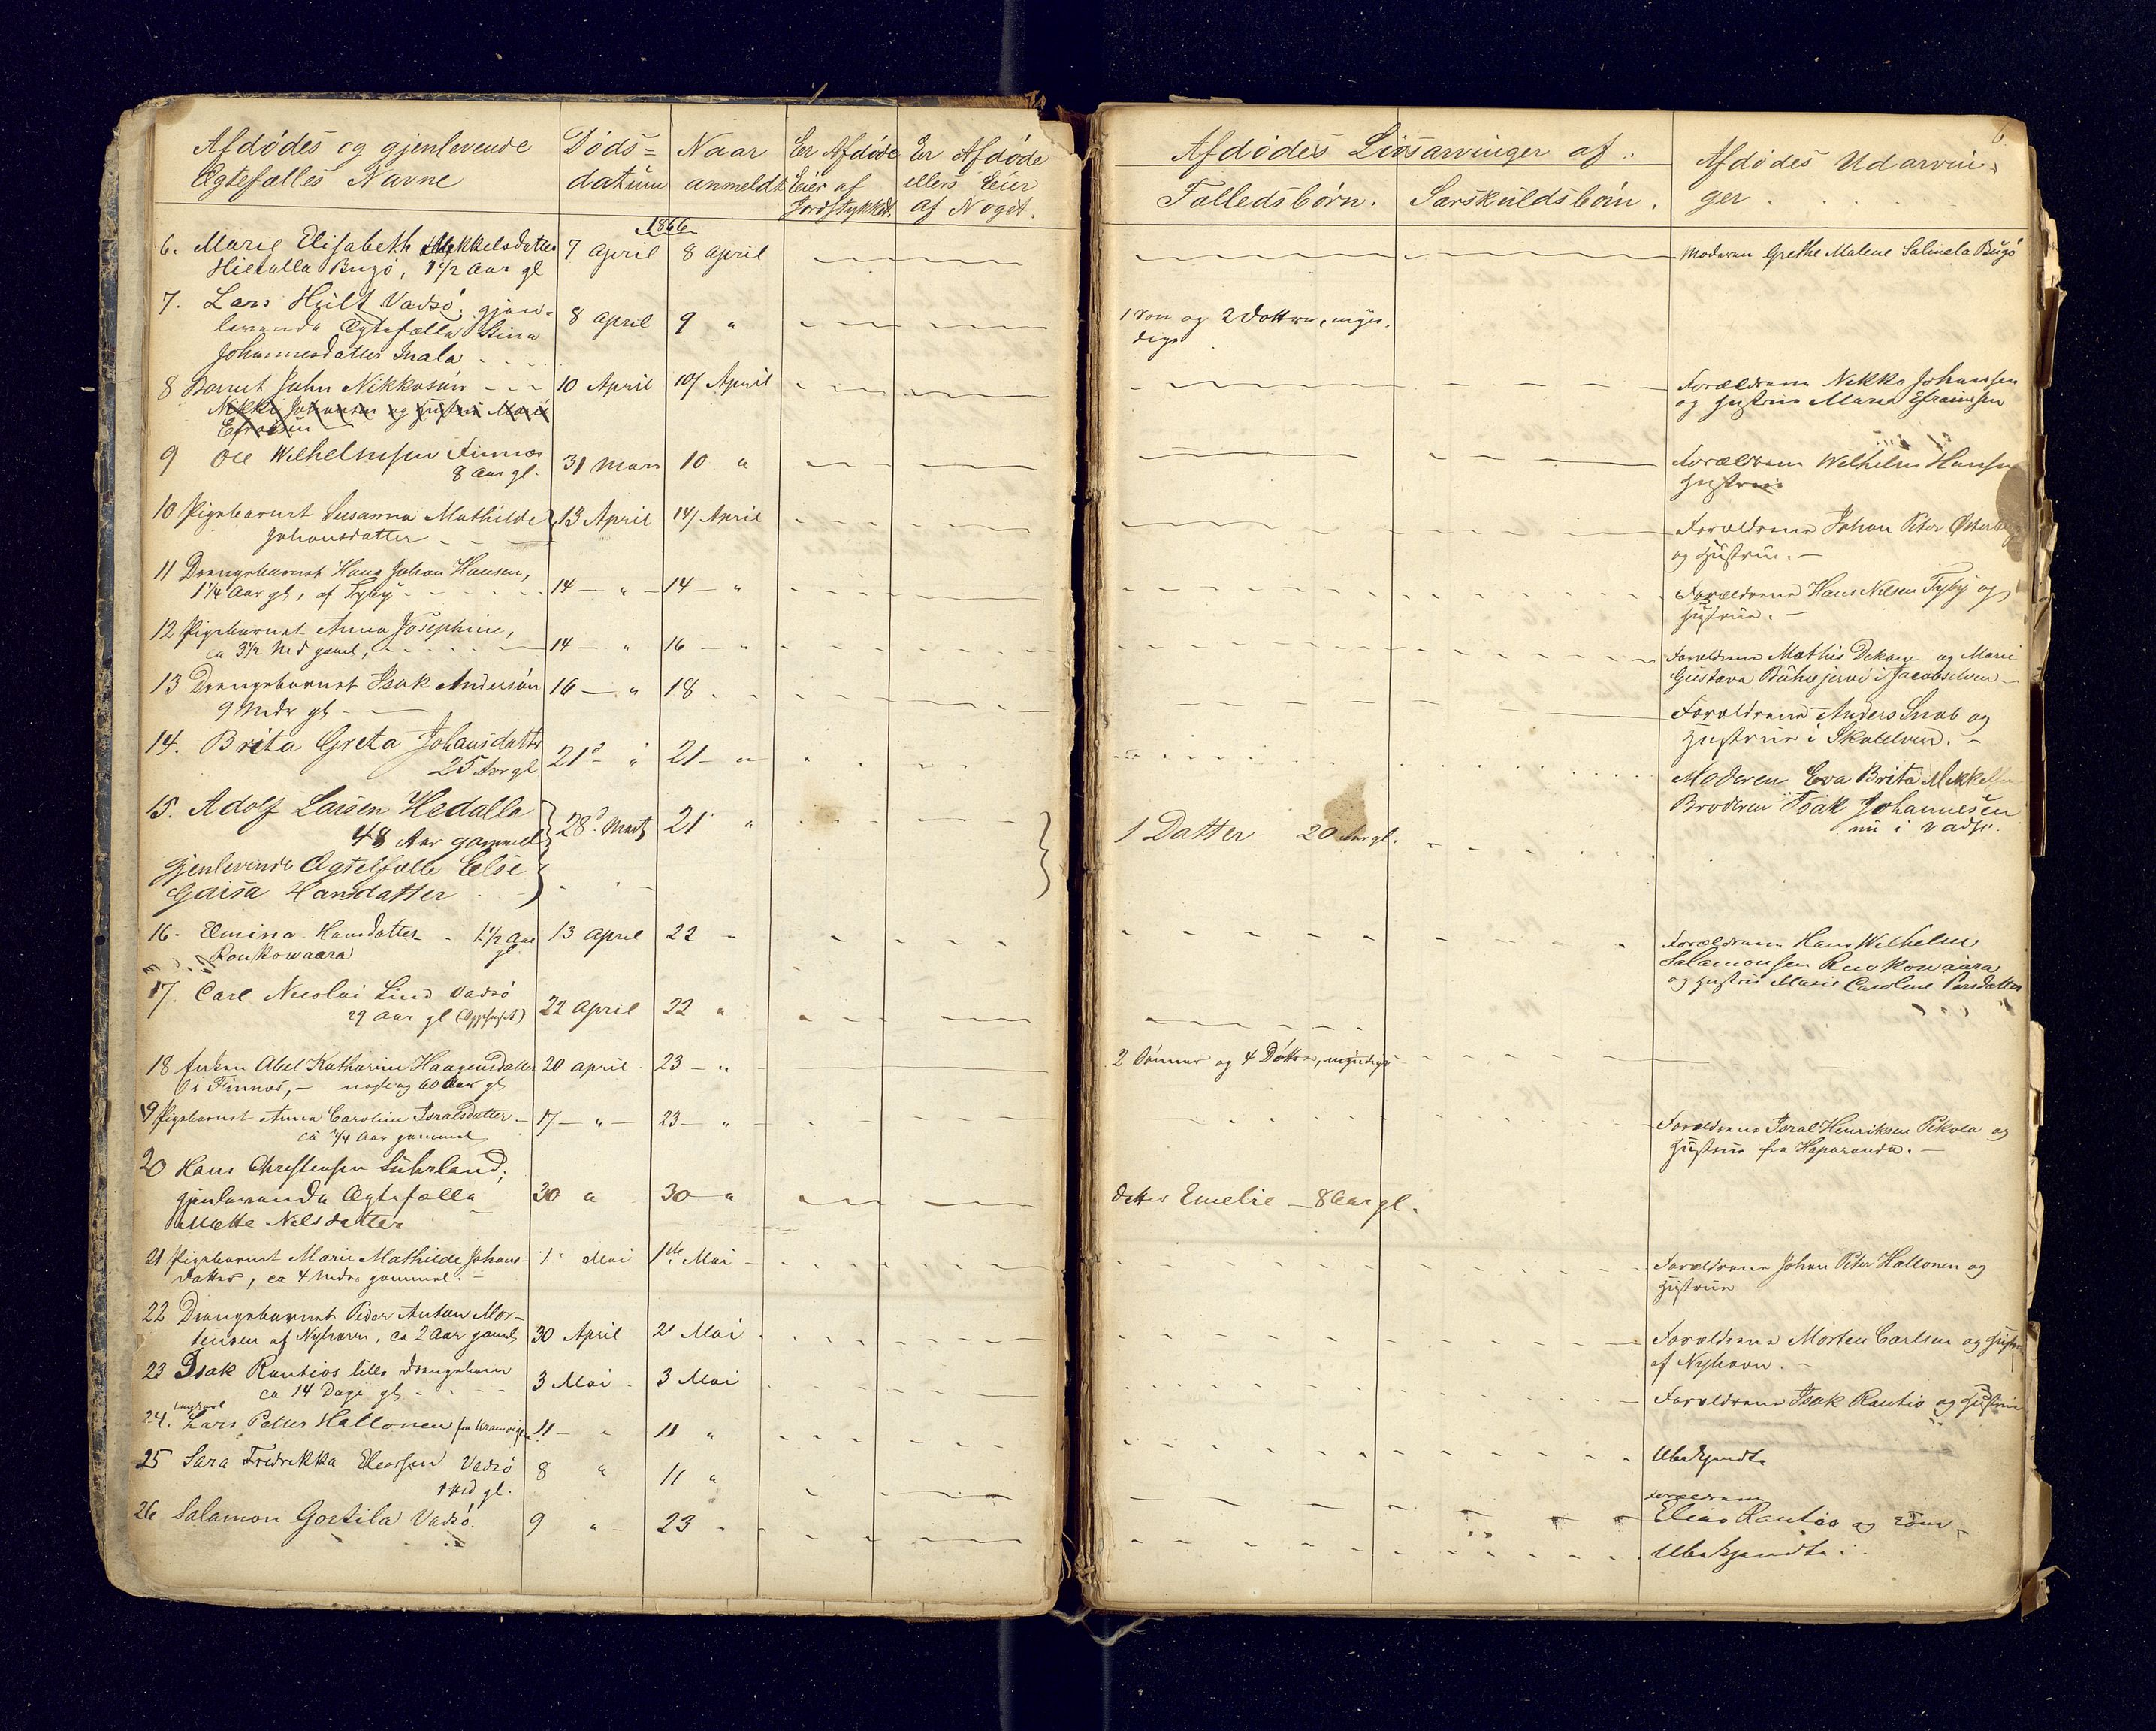 6
Afdödes og gjenlevende
Ægtefælles Navne
Döds=
datum
Naar
anmeldt
Er Afdöde
Eier af
Jordstykket.
Er Afdöde
ellers Eier
af Noget.
Afdödes Livsarvinger af
Fælledsbörn.
Særskuldsbörn.
Afdödes Udarvin-
ger
1866
6. Marie Elisabeth Mekkelsdatter 7 April 8 April Moderen Grethe Malene Salmela Bugö
Hietalla Bugö, 1 1/2 Aar gl
7. Lars Hult Vadsö; gjen- 8 April 9 " 1 Sön og 2 Dottre, myn-
levende Ægtefælle Stina dige
Johannesdatter Inala
8 Barnet John Nikkosön 10 April 10/ April Forældrene Nikko Johansen
Nikko Johansen og Hustru Maria og Hustru Maria Efraimsen
9 Ole Wilhelmsen Finnæs 31 Mars 10 " Forældrene Wilhelm Hansen
8 Aar gl. Hustrue
10 Pigebarnet Susanna Mathilde 13 April 14/ April Forældrene Johan Peter
Johansdatter og Hustrue.
11 Drengebarnet Hans Johan Hansen, 14 " 14 " Forældrene Hans Nilsen Tyby og
1 1/4 Aar gl, af Tyby Hustrue.
12 Pigebarnet Anna Josephine, 14 " 16 " Forældrene Mathis Dekane og Marie
ca 3 1/2 Md gaml, Gustava i Jacobselven
13 Drengebarnet Isak Andersön 16 " 18 Forældrene Anders Snab og
9 Mdr gl Hustrue i Skalelven.
14. Brita Greta Johansdatter 21 " 21 " Moderen Eva Brita
25 Aar gl Broderen Isak Johannesen
nu i Vadsö.
15. Adolf Larsen Hedalla 28 Marts 21 " 1 Datter 20 Aar gl.
48 Aar gammel
gjenlevende Ægtefælle Else
Gaisa Hansdatter
16. Elmina Hansdatter 1 1/2 Aar gl 13 April 22 " Forældrene Hans Wilhelm
Roukowaara Salamonsen Roukowaara
og Hustru Marie Caroline Persdatter
17. Carl Nicolai Lind Vadsö 22 April 22 "
29 Aar gl
18 Enken Abel Katharine Haagensdatter 20 April 23 " 2 Sönner og 4 Döttre, myndige
i Finnæs, nogle og 60 Aar gl
19 Pigebarnet Anna Caroline Israelsdatter 17 " 23 " Forældrene Israel Henriksen Pekola og
ca 3/4 Aar gammel Hustrue fra Haparanda.
20 Hans Christensen Suhrland; 30 " 30 " datter Emelie 8 Aar gl.
gjenlevende Ægtefælle
Mette Nilsdatter
21 Pigebarnet Marie Mathilde Johans- 1 Mai 1de Mai Forældrene Johan Peter Hallonen og
datter, ca 4 Mdr gammel. Hustrue
22 Drengebarnet Peder Anton Mor- 30 April 2 Mai Forældrene Morten Carlsen og Hustru
tensen af Nyhavn, ca 2 Aar gaml, af Nyhavn.
23 Isak Rantios lille Drengebarn 3 Mai 3 Mai Forældrene Isak Rantio og Hustrue
ca 14 Dage gl
24. Lars Petter Hallonen fra 11 " 11 " Ubekjendte
25 Sara Fredrikka Eliassen Vadsö 8 " 11 " Forældrene
1 Md gl. Elias Rantio og
26 Salamon Gortila Vadsö. 9 " 23 Ubekjendte